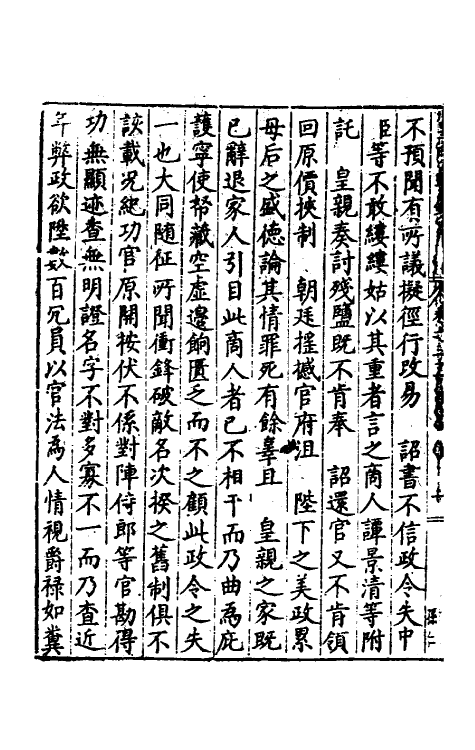 不預聞有所議擬徑行改易　詔書不信政令失中
臣等不敢縷縷姑以其重者言之商人譚景清等附
託　皇親奏討殘鹽既不肯奉　詔還官又不肯領
回原價挾制　朝廷搖撼官府沮　陛下之美政累
母后之盛德論其情罪死有餘辜且　皇親之家既
已辭退家人引目此商人者已不相干而乃曲為庇
護寧使帑藏空虛邊餉匱乏而不之顧此政令之失
一也大同隨征所聞衝鋒破敵名次揆之舊制俱不
該載况紀功官原開按伏不係對陣侍郎等官勘得
功無顯迹查無明證名字不對多寡不一而乃查近
年弊政欲陞數百冗員以官法為人情視爵祿如糞